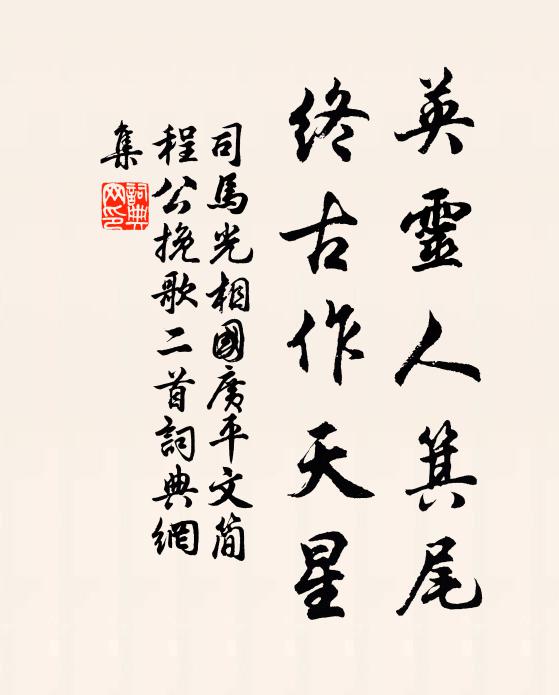 英靈人箕尾
終古作天星
司馬光相國廣平文简
程公挽歌二首詞典網
集
詞典
网印